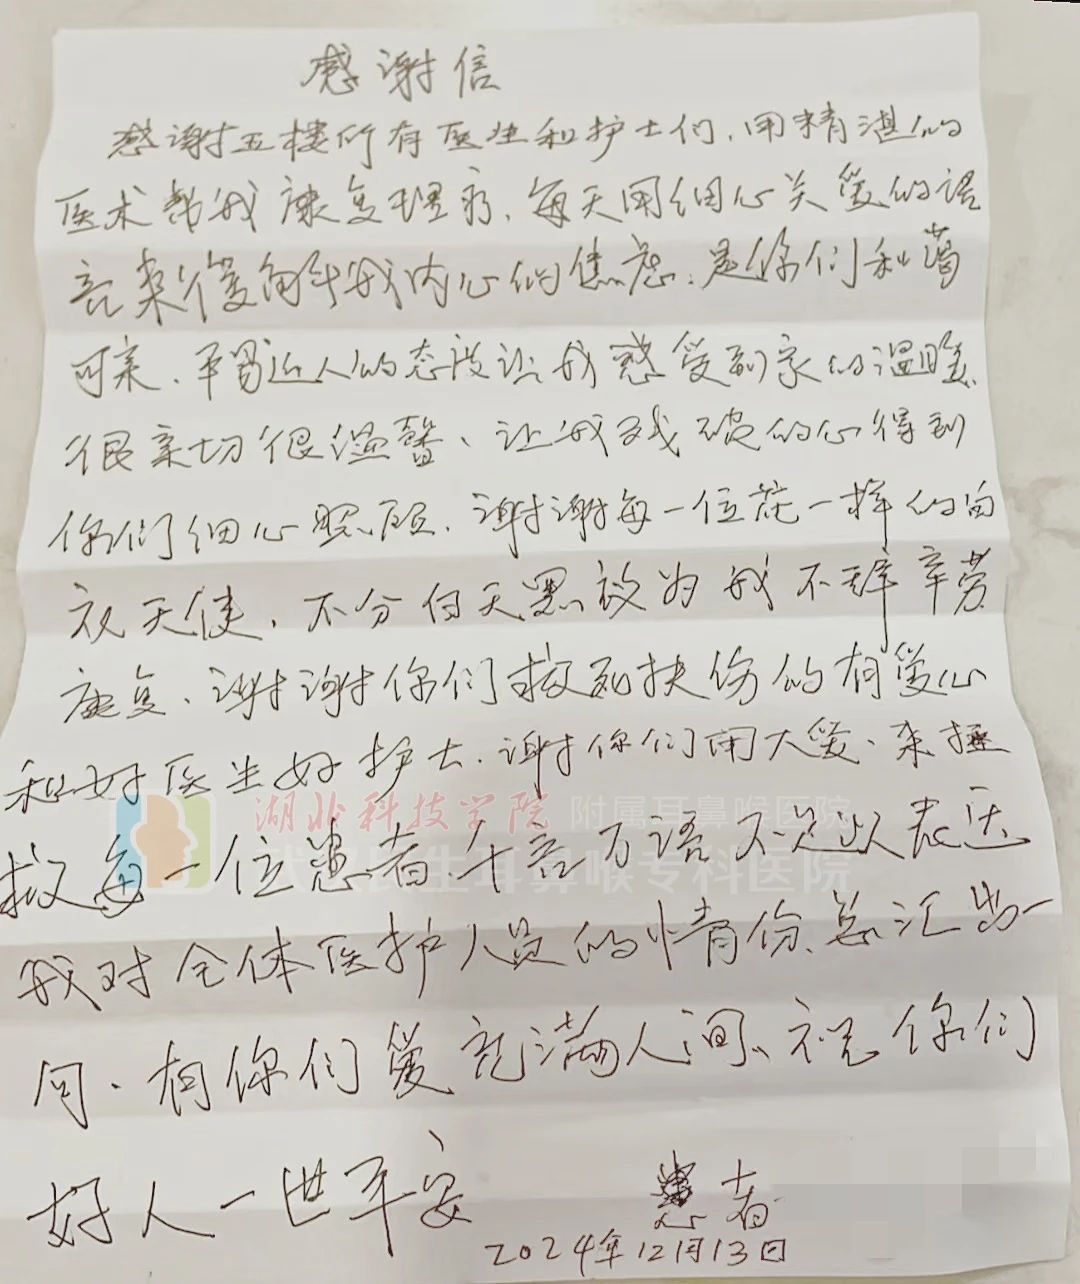 感谢信
感谢五楼所有医生和护士们、用精湛的
医术帮我康复理疗、每天用细心关爱的语
言来缓解我内心的焦虑、是你们和蔼
可亲、平易近人的态度让我感受到家的温暖、
很亲切很温馨、让我残破的心得到
你们细心照顾、谢谢每一位花一样的白
衣天使、不分白天黑夜为我不辞辛劳
康复、谢谢你们救死扶伤的有爱心
和好医生好护士、谢你们用大爱、来拯
救每一位患者、千言万语不足以表达
我对全体医护人员的情份、总汇出一
句、有你们爱充满人间、祝你们
好人一世平安
患者
2024年12月13日
湖北科技学院 附属耳鼻喉医院
武汉民生耳鼻喉专科医院